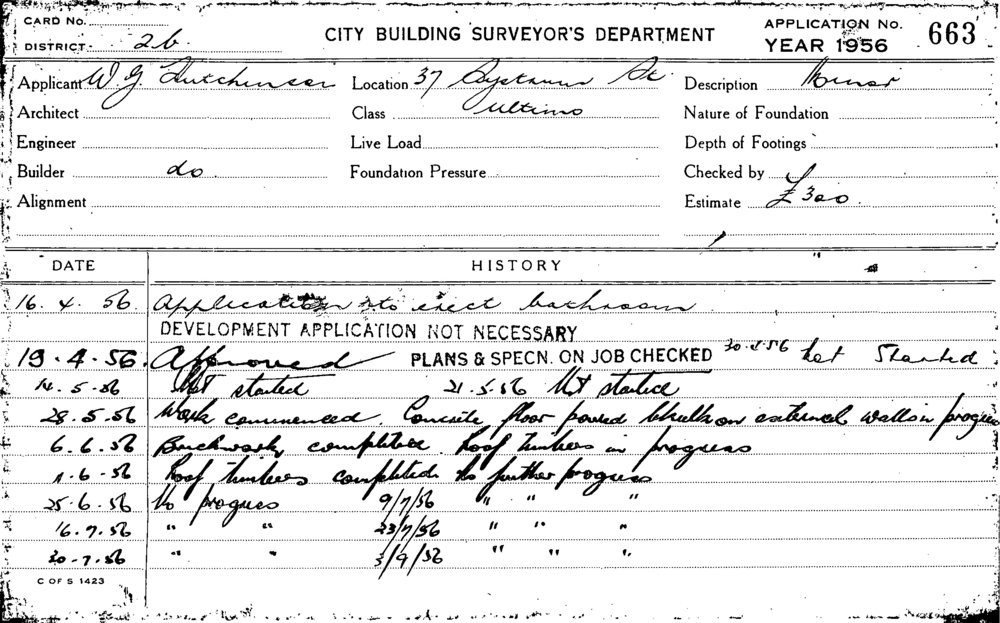 CARD No.
DISTRICT 2b
CITY BUILDING SURVEYOR'S DEPARTMENT
APPLICATION No. 663
YEAR 1956
Applicant W G Hutchinson Location 37 St Description Minor
Architect Class Ultimo Nature of Foundation
Engineer Live Load Depth of Footings
Builder do Foundation Pressure Checked by
Alignment Estimate £300
DATE HISTORY
16. 4. 56. Application to erect bathroom
DEVELOPMENT APPLICATION NOT NECESSARY
19. 4. 56. Approved PLANS & SPECN. ON JOB CHECKED Not Started
14. 5. 56 Not started 21. 5. 56 Not started
28. 5. 56 Work commenced. Concrete floor poured on external walls in progress
6. 6. 56 Brickwork completed Roof timbers in progress
6. 56 Roof timbers completed No further progress
25. 6. 56 No progress 9/7/56 " " "
16. 7. 56 " " 23/7/56 " " "
30. 7. 56 " " 3/9/56 " " "
C OF S 1423